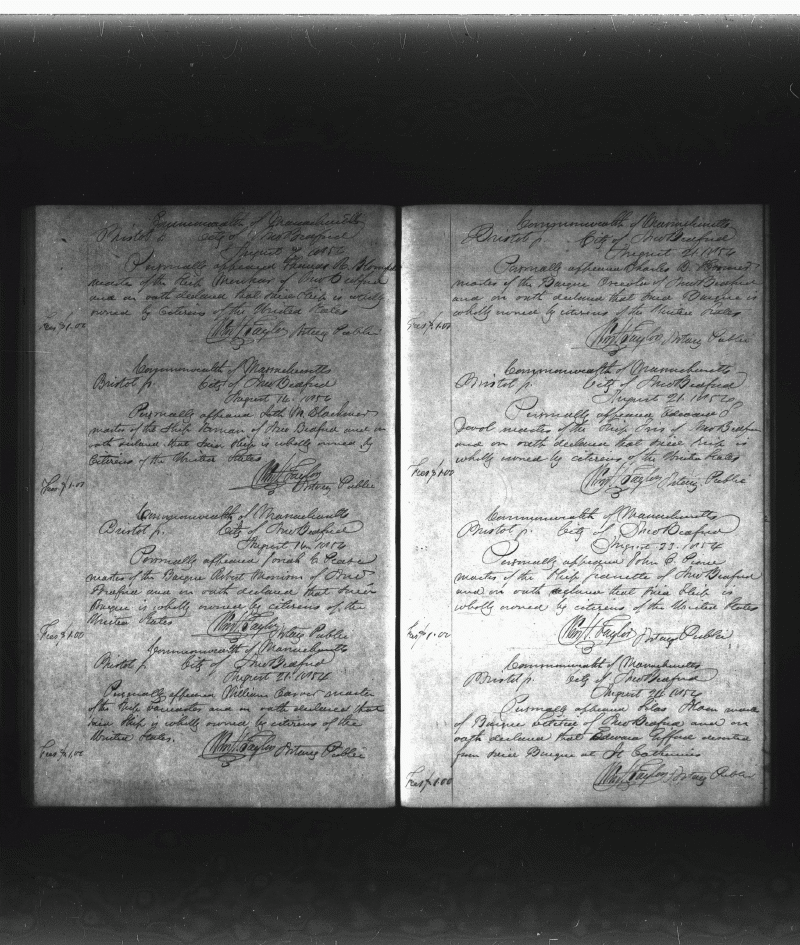 Commonwealth of Massachusetts
Bristol ss. City of New Bedford
August 1854
Personally appeared
master of the Ship of New Bedford
and on oath declared that said Ship is wholly
owned by Citizens of the United States
Fees $1.00
Wm H Taylor Notary Public
Commonwealth of Massachusetts
Bristol ss. City of New Bedford
August 14. 1854
Personally appeared Seth M. Blackmer
master of the Ship of New Bedford and on
oath declared that said Ship is wholly owned by
Citizens of the United States
Wm H Taylor
Notary Public
Fees $1.00
Commonwealth of Massachusetts
Bristol ss. City of New Bedford
August 14. 1854
Personally appeared Josiah C. Pease
master of the Barque Robert Morrison of New
Bedford and on oath declared that said
Barque is wholly owned by citizens of the
United States Wm H Taylor
Fees $1.00 Notary Public
Commonwealth of Massachusetts
Bristol ss. City of New Bedford
August 21. 1854
Personally appeared William Carver master
of the Ship and on oath declared that
said Ship is wholly owned by citizens of the
United States.
Wm H Taylor Notary Public
Fees $1.00
Commonwealth of Massachusetts
Bristol ss. City of New Bedford
August 21. 1854
Personally appeared Charles B.
master of the Barque of New Bedford
and on oath declared that said Barque is
wholly owned by citizens of the United States
Fees $1.00
Wm H Taylor Notary Public
Commonwealth of Massachusetts
Bristol ss. City of New Bedford
August 21. 1854
Personally appeared Edward
master of the Ship of New Bedford
and on oath declared that said Ship is
wholly owned by citizens of the United States
Fees $1.00
Wm H Taylor Notary Public
Commonwealth of Massachusetts
Bristol ss. City of New Bedford
August 23. 1854
Personally appeared John C.
master of the Ship Jeanette of New Bedford
and on oath declared that said Ship is
wholly owned by citizens of the United States
Fees $1.00
Wm H Taylor Notary Public
Commonwealth of Massachusetts
Bristol ss. City of New Bedford
August 24. 1854
Personally appeared Silas
of Barque of New Bedford and on
oath declared that Edward Gifford deserted
from said Barque at St Catherines
Wm H Taylor Notary Public
Fees $1.00